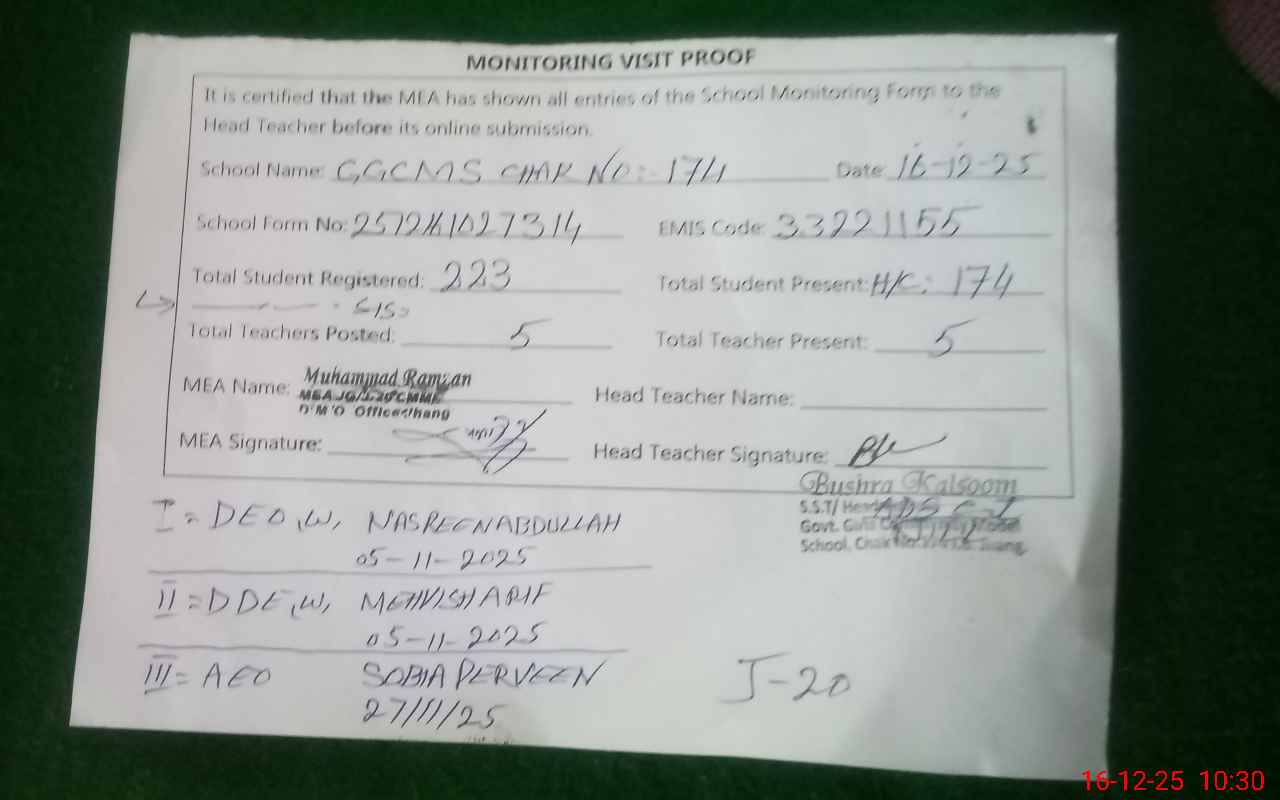 MONITORING VISIT PROOF
It is certified that the MEA has shown all entries of the School Monitoring Form to the
Head Teacher before its online submission.
School Name: GGCMS CHAK NO:- 174 Date: 16-12-25
School Form No: EMIS Code: 33221155
Total Student Registered: 223 Total Student Present: H/C: 174
Total Teachers Posted: 5 Total Teacher Present: 5
MEA Name: Muhammad Ramzan Head Teacher Name:
D.M.O Office Jhang
MEA Signature: Head Teacher Signature:
Bushra Kalsoom
S.S.T/
Govt.
School, Chak No. Jhang
I = DEO,W, NASREEN ABDULLAH
05-11-2025
II = DDE,W, MEHVISH ARIF
05-11-2025
III = AEO SOBIA PERVEEN
27/11/25
J-20
16-12-25 10:30